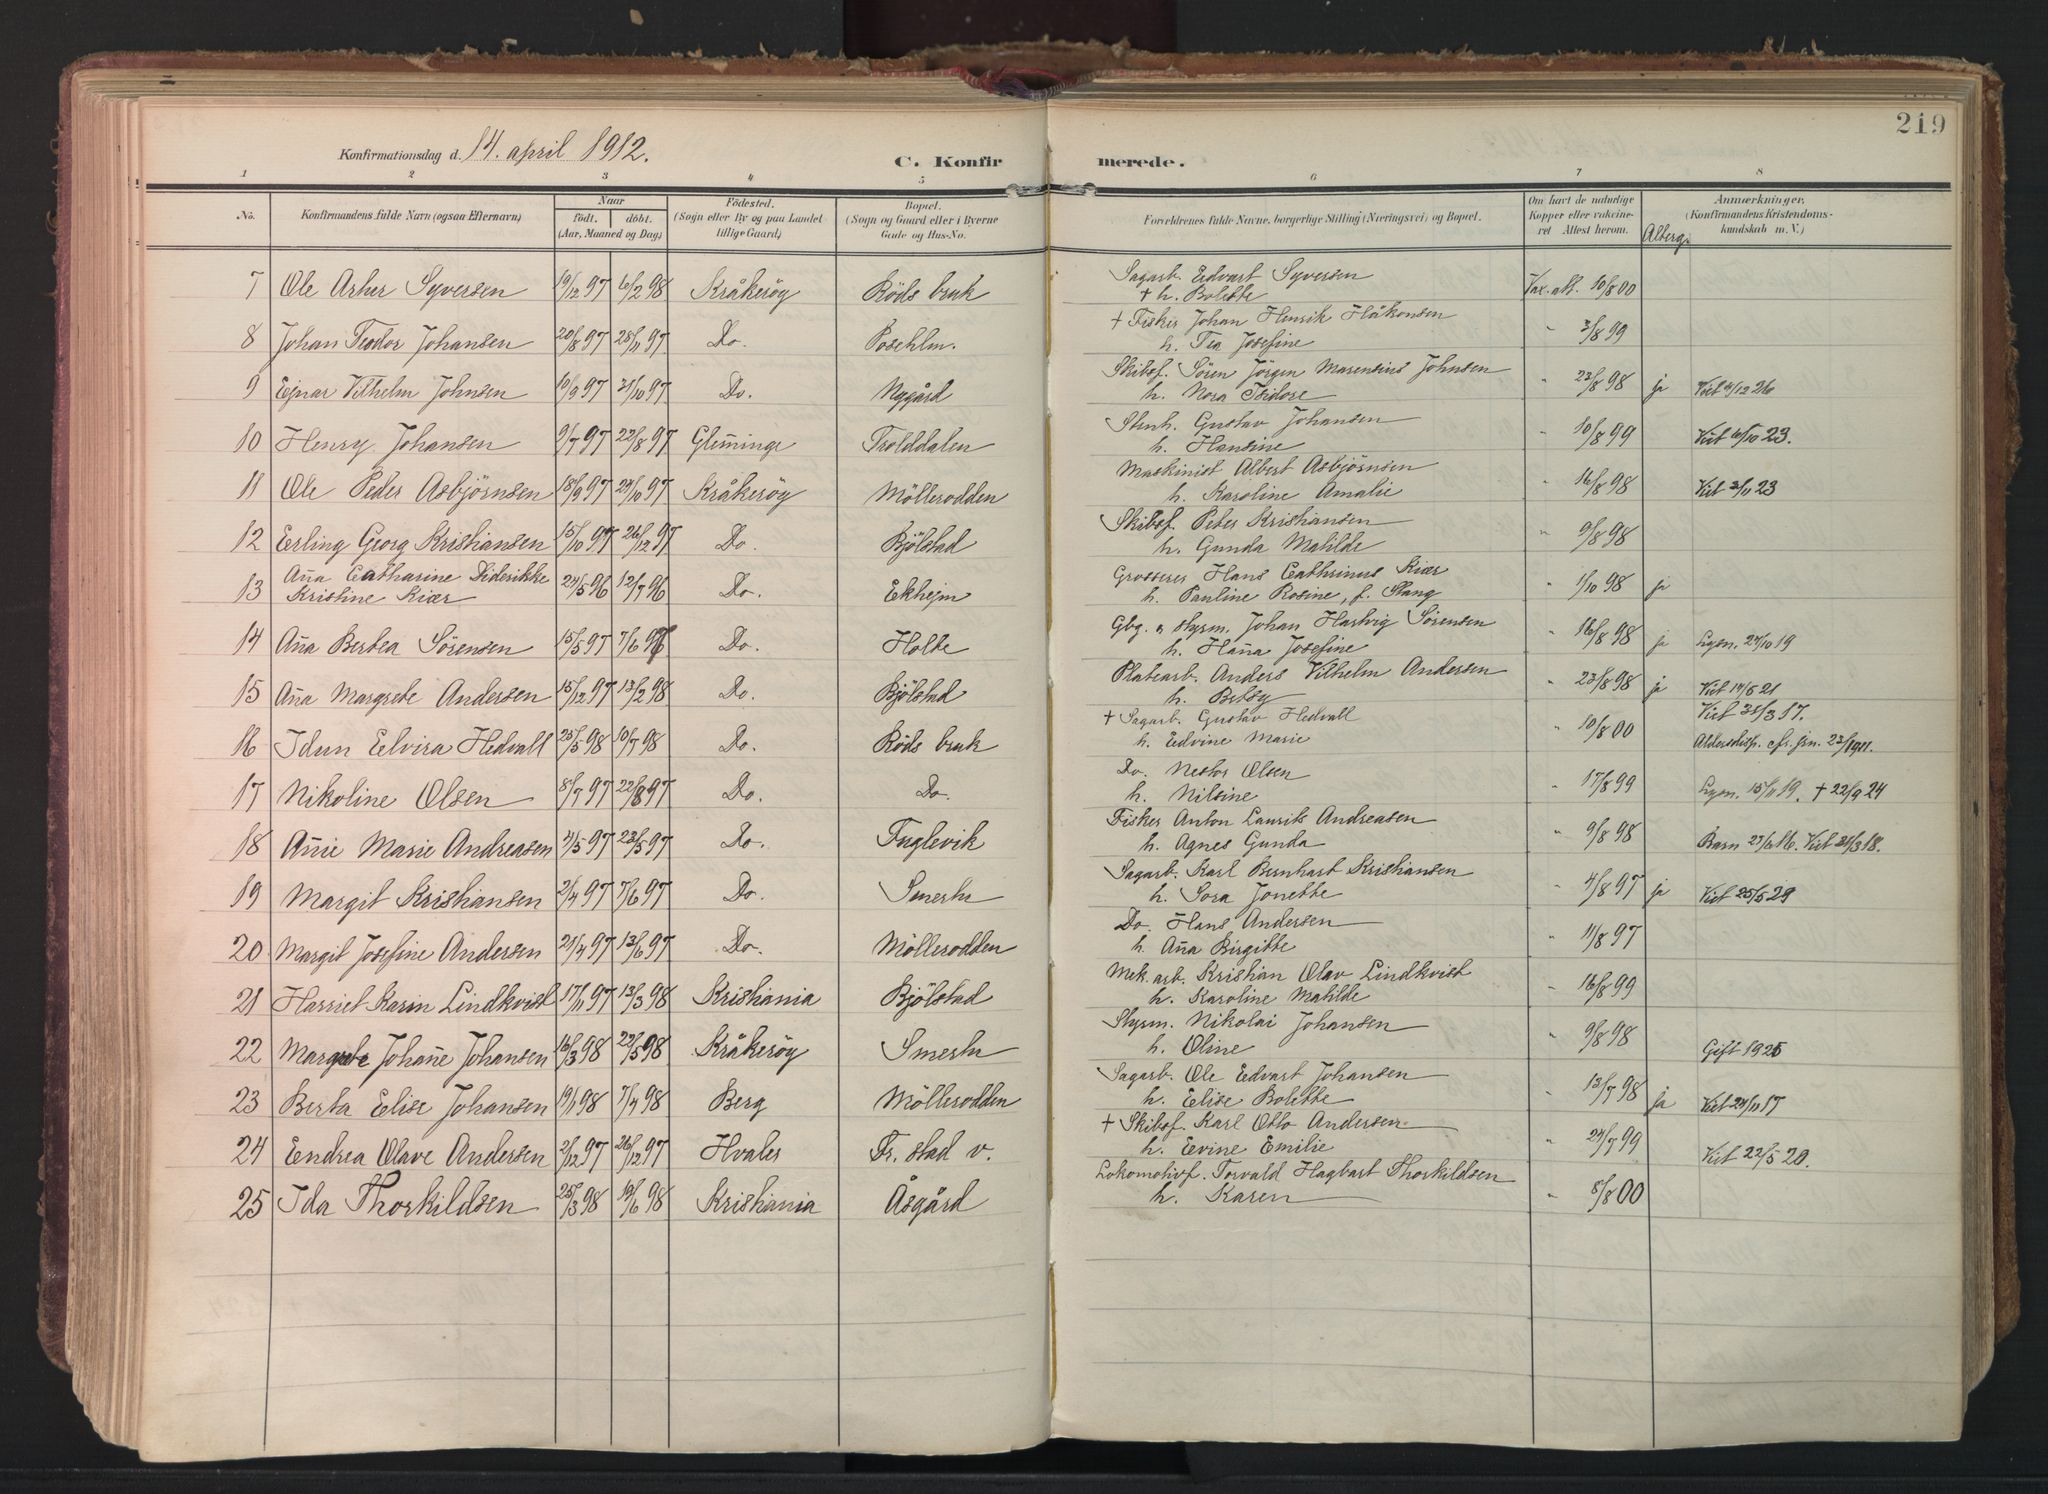 219
Konfirmationsdag d. 14. april 1912.
C. Konfirmerede.
1 2 3 4 5 6 7 8
No. Konfirmandens fulde Navn (ogsaa Efternavn) Naar født. døbt. (Aar, Maaned og Dag) Fødested. (Sogn eller By og paa Landet tillige Gaard) Bopæl. (Sogn og Gaard eller i Byerne Gade og Hus-No. Forældrenes fulde Navne, borgerlige Stilling (Næringsvei) og Bopæl. Om havt de naturlige Kopper eller vakcineret Attest herom. Alberg. Anmærkninger. (Konfirmandens Kristendomskundskab m. V.)
7 Ole Asher Syversen 19/12 97 6/2 98 Kråkerøy Röds bruk Sagarb. Edvart Syversen
+ h. Bolette Vax. att. 10/8 00
8 Johan Teodor Johansen 20/8 97 28/11 97 Do. Posehlm. + Fisker Johan Henrik Håkonsen
h. Tea Josefine " 3/8 99
9 Ejnar Vilhelm Johnsen 10/9 97 31/10 97 Do. Nygård Skibsf. Sören Jörgen Marensius Johnsen
h. Nora Isidore " 23/8 98 ja Viet 4/12 26
10 Henry Johansen 9/7 97 22/8 97 Glem̄inge Trolddalen Stenh. Gustav Johansen
h. Hansine " 10/8 99 Viet 6/10 23.
11 Ole Peder Asbjörnsen 18/9 97 24/10 97 Kråkerøy Möllerodden Maskinist Albert Asbjörnsen
h. Karoline Amalie " 16/8 98 Viet 3/11 23
12 Erling Georg Kristiansen 15/10 97 26/12 97 Do. Bjölstad Skibsf. Peter Kristiansen
h. Gunda Matilde " 9/8 98
13 An̄a Catharine Diderikke
Kristine Kiær 24/5 96 12/7 96 Do. Ekhejm Grosserer Hans Cathrinus Kiær
h. Pauline Rosine, f. Stang " 1/10 98 ja
14 An̄a Bertea Sörensen 15/5 97 7/6 97 Do. Holte Gbg. o styrm. Johan Hartvig Sörensen
h. Han̄a Josefine " 16/8 98 ja Lysn. 27/10 19
15 An̄a Margrete Andersen 15/12 97 13/2 98 Do. Bjölstad Platearb. Anders Vilhelm Andersen
h. Betsy " 23/8 98 ja Viet 14/5 21
16 Idun Elvira Hedvall 25/5 98 10/7 98 Do. Röds bruk + Sagarb. Gustav Hedvall
h. Edvine Marie " 10/8 00 Viet 31/3 17.
Aldersdisp. cfr. jrn. 23/1911.
17 Nikoline Olsen 8/7 97 22/8 97 Do. Do. Do. Nestor Olsen
h. Nilsine " 17/8 99 Lysn. 15/11 19. + 22/9 24
18 An̄ie Marie Andreasen 4/5 97 23/5 97 Do. Fuglevik Fisker Anton Laurits Andreasen
h. Agnes Gunda " 9/8 98 Barn 23/6 16. Viet 31/3 18.
19 Margit Kristiansen 2/4 97 7/6 97 Do. Smertu Sagarb. Karl Bernhart Kristiansen
h. Sora Jonette " 4/8 97 ja Viet 25/5 29
20 Margit Josefine Andersen 21/4 97 13/6 97 Do. Möllerodden Do. Hans Andersen
h. An̄a Birgitte " 11/8 97
21 Harriet Karin Lindkvist 17/11 97 13/3 98 Kristiania Bjölstad Mek. arb. Kristian Olav Lindkvist
h. Karoline Matilde " 16/8 99
22 Margrete Johan̄e Johansen 16/3 98 22/5 98 Kråkerøy Smertu Styrm. Nikolai Johansen
h. Oline " 9/8 98 Gift 1925
23 Berta Elise Johansen 19/1 98 7/4 98 Berg Möllerodden Sagarb. Ole Edvart Johansen
h. Elise Bolette " 13/7 98 ja Viet 24/11 17
24 Endrea Olave Andersen 2/12 97 26/12 97 Hvaler Fr. stad v. + Skibsf. Karl Otto Andersen
h. Evine Emilie " 24/7 99 Viet 22/5 20.
25 Ida Thorkildsen 25/3 98 19/6 98 Kristiania Åsgård Lokomotivf. Torvald Hagbart Thorkildsen
h. Karen " 8/8 00